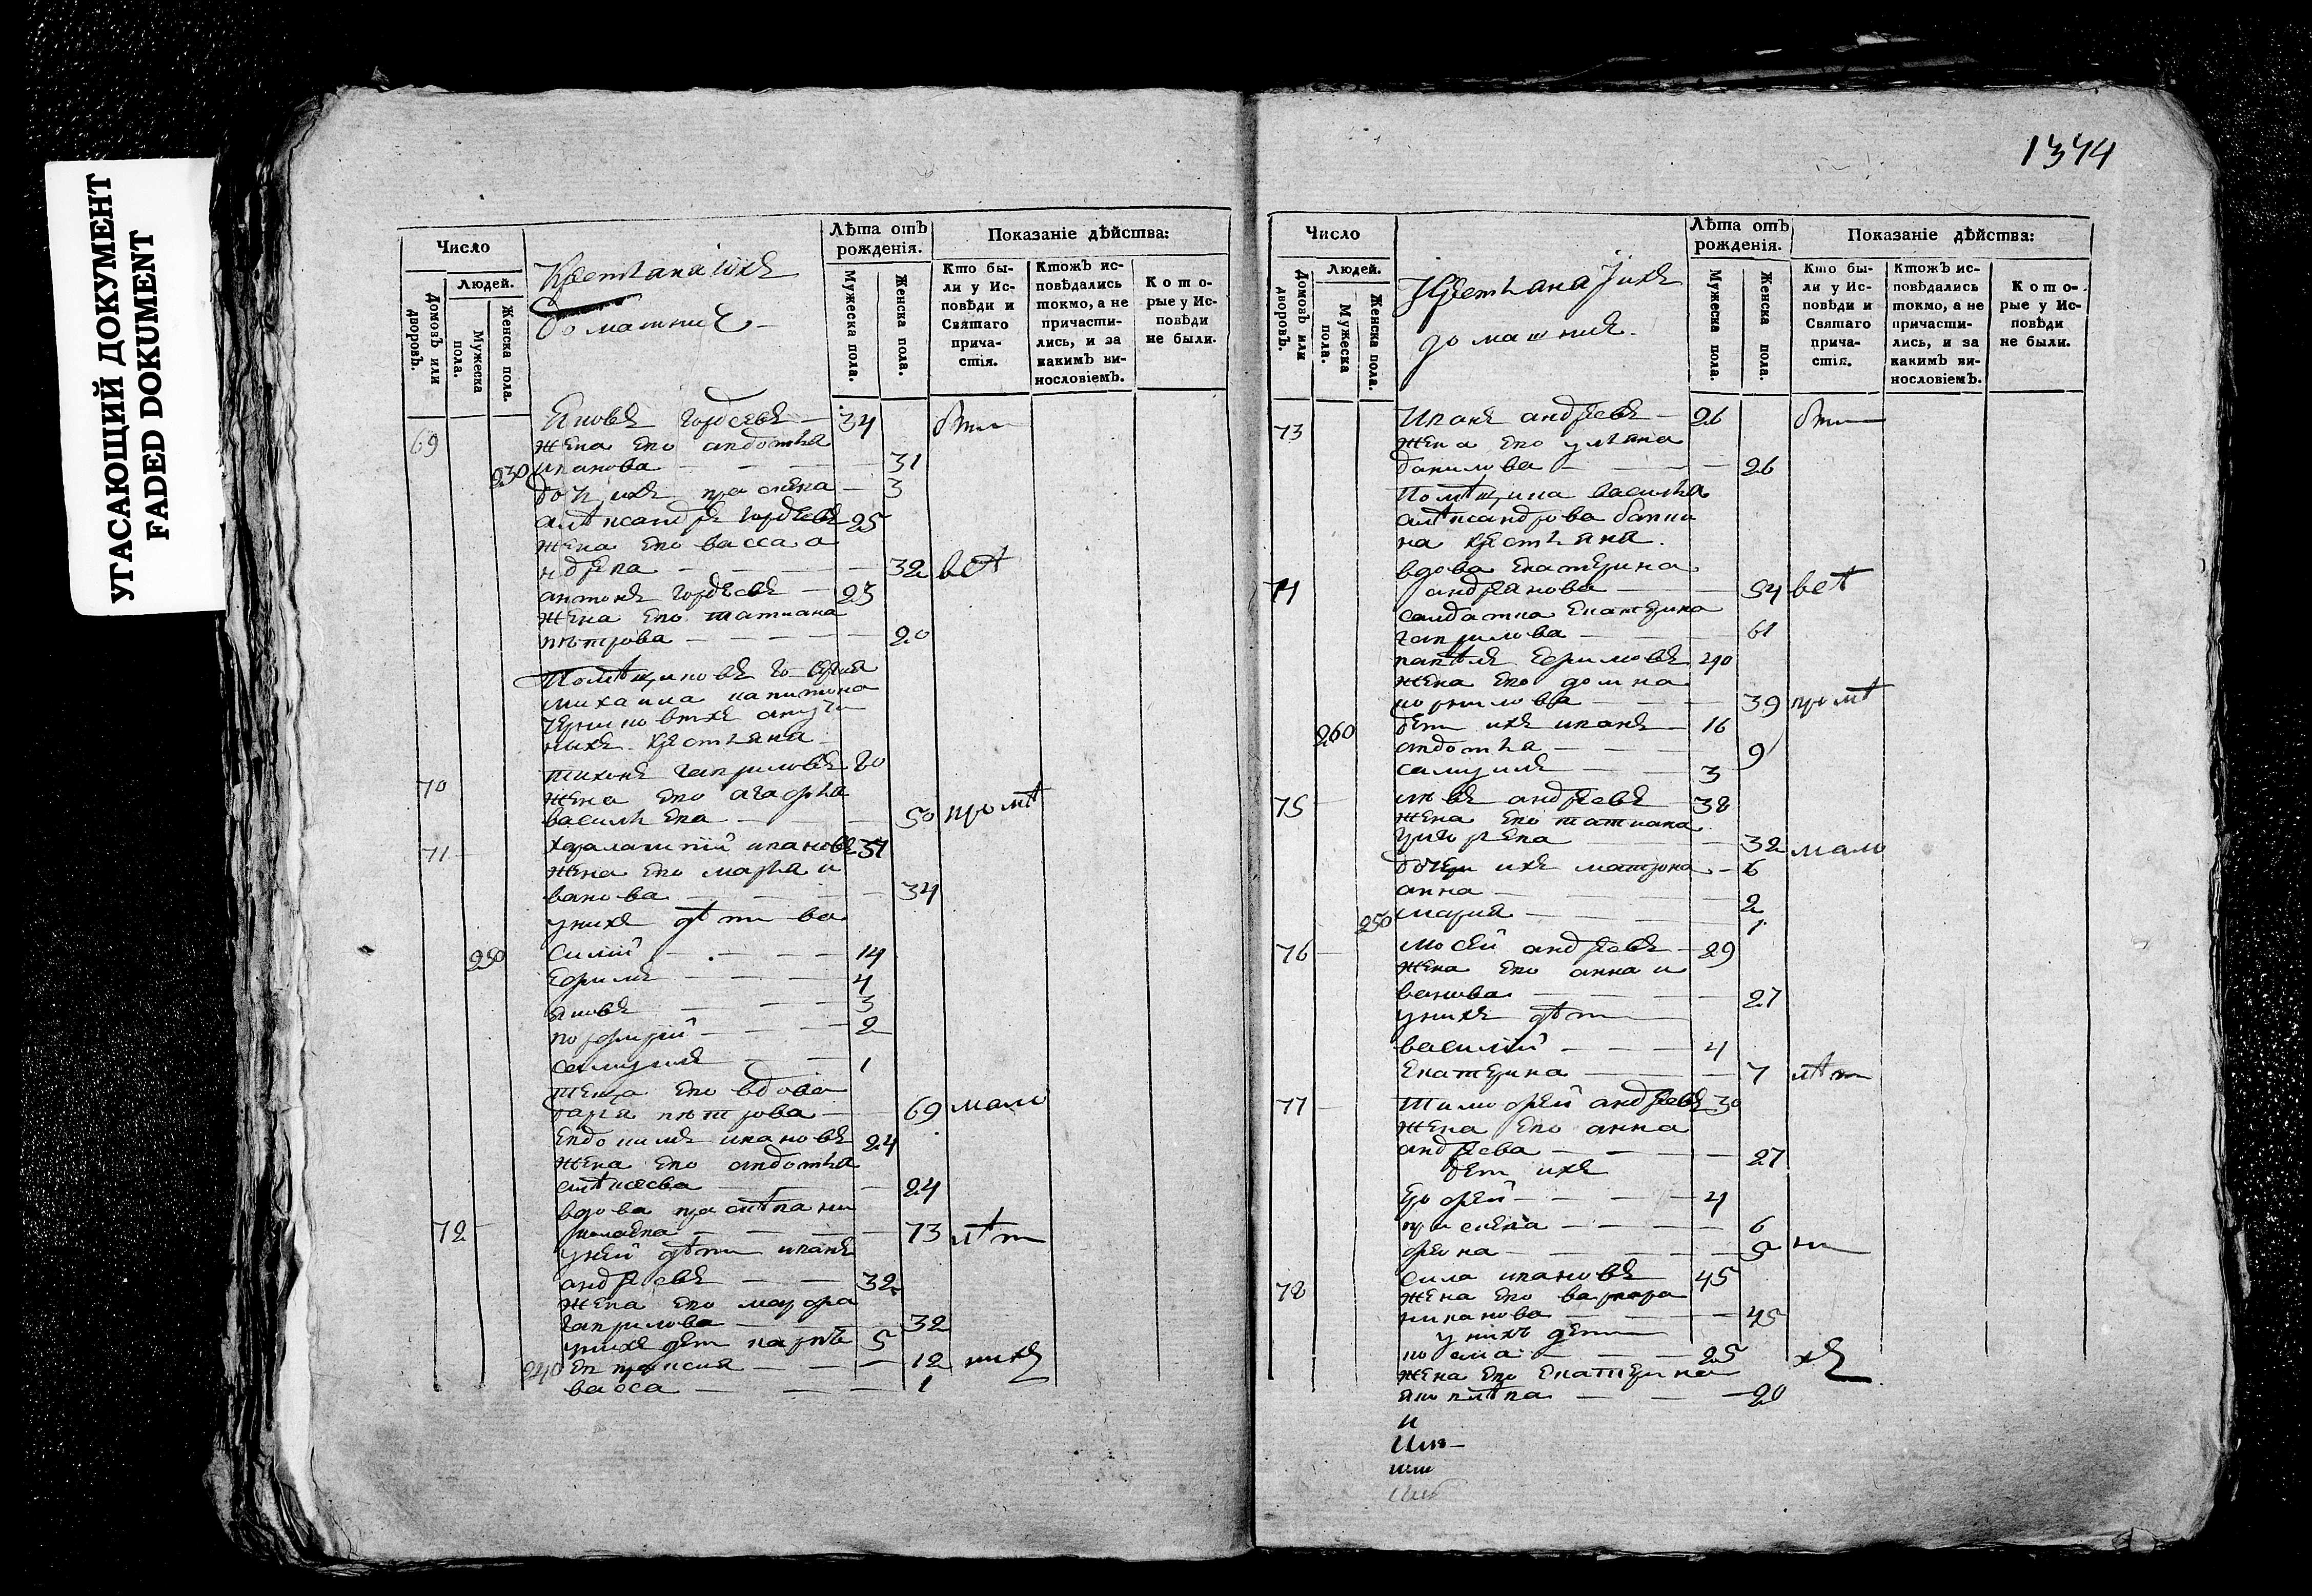 УГАСАЮЩИЙ ДОКУМЕНТ
FADED DOKUMENT
1344
Число
Людей.
Домовъ или дворовъ.
Мужеска пола.
Женска пола.
Крестьяна ихъ
домашние
Лѣта отъ рожденія.
Мужеска пола.
Женска пола.
Показаніе дѣйства:
Кто бы-
ли у Ис-
повѣди и
Святаго
прича-
стія.
Ктожъ ис-
повѣдались
токмо, а не
причасти-
лись, и за
какимъ ви-
нословіемъ.
Кото-
рые у Ис-
повѣди
не были.
69 Яковъ гордеевъ 34
жена его авдотья
230 иванова 31
дочь ихъ 3
алѣксандръ гордѣевъ 25
жена его васса а
ндрева 32 всѣ
антонъ гордѣевъ 23
жена его татиана
пѣтрова 20
михаила капитона
крестьяна
70 тихонъ гавриловъ 60
жена его агафья
васильева 50
71 харалампий ивановъ 37
жена его марья и
ванова 34
у нихъ дѣти ва
230 силий 14
Ефимъ 4
яковъ 3
порфирий 2
самуилъ 1
теща его вдова
дарья пѣтрова 69 мало
Евдокимъ ивановъ 24
жена его авдотья
алѣксева 24
72 73 лѣт
у ней дѣти иванъ
андреевъ 32
жена его мавра
гаврилова 32
у нихъ дет карпъ 5
240 Евпраксия 12 нихъ
васса 1
Число
Людей.
Домовъ или дворовъ.
Мужеска пола.
Женска пола.
Крестьяна ихъ
домашние
Лѣта отъ рожденія.
Мужеска пола.
Женска пола.
Показаніе дѣйства:
Кто бы-
ли у Ис-
повѣди и
Святаго
прича-
стія.
Ктожъ ис-
повѣдались
токмо, а не
причасти-
лись, и за
какимъ ви-
нословіемъ.
Кото-
рые у Ис-
повѣди
не были.
73 Иванъ андреевъ 26
жена его ульяна
данилова 26
Помѣщика василья
алѣксандрова
на крестьяна
вдова Екатерина
74 андреанова 54 всѣ
салдатка Екатерина
гаврилова 61
павѣлъ Ефимовъ 40
жена его домна
корнилова 39
260 дет ихъ иванъ 16
авдотья 9
самуилъ 3
75 андреевъ 38
жена его татиана
григорева 32 мало
дочери ихъ матрона 6
анна 2
250 мария 1
76 мосей андреевъ 29
жена его анна и
ванова 27
у нихъ дѣти
василий 4
Екатерина 7 лѣт
77 тимофей андреевъ 30
жена его анна
андреева 27
дет ихъ
Ерофей 4
6
78 сила ивановъ 45
жена его варвара
иванова 45
у нихъ дети
козма 25 хъ
жена его Екатерина
яковлѣва 20
и